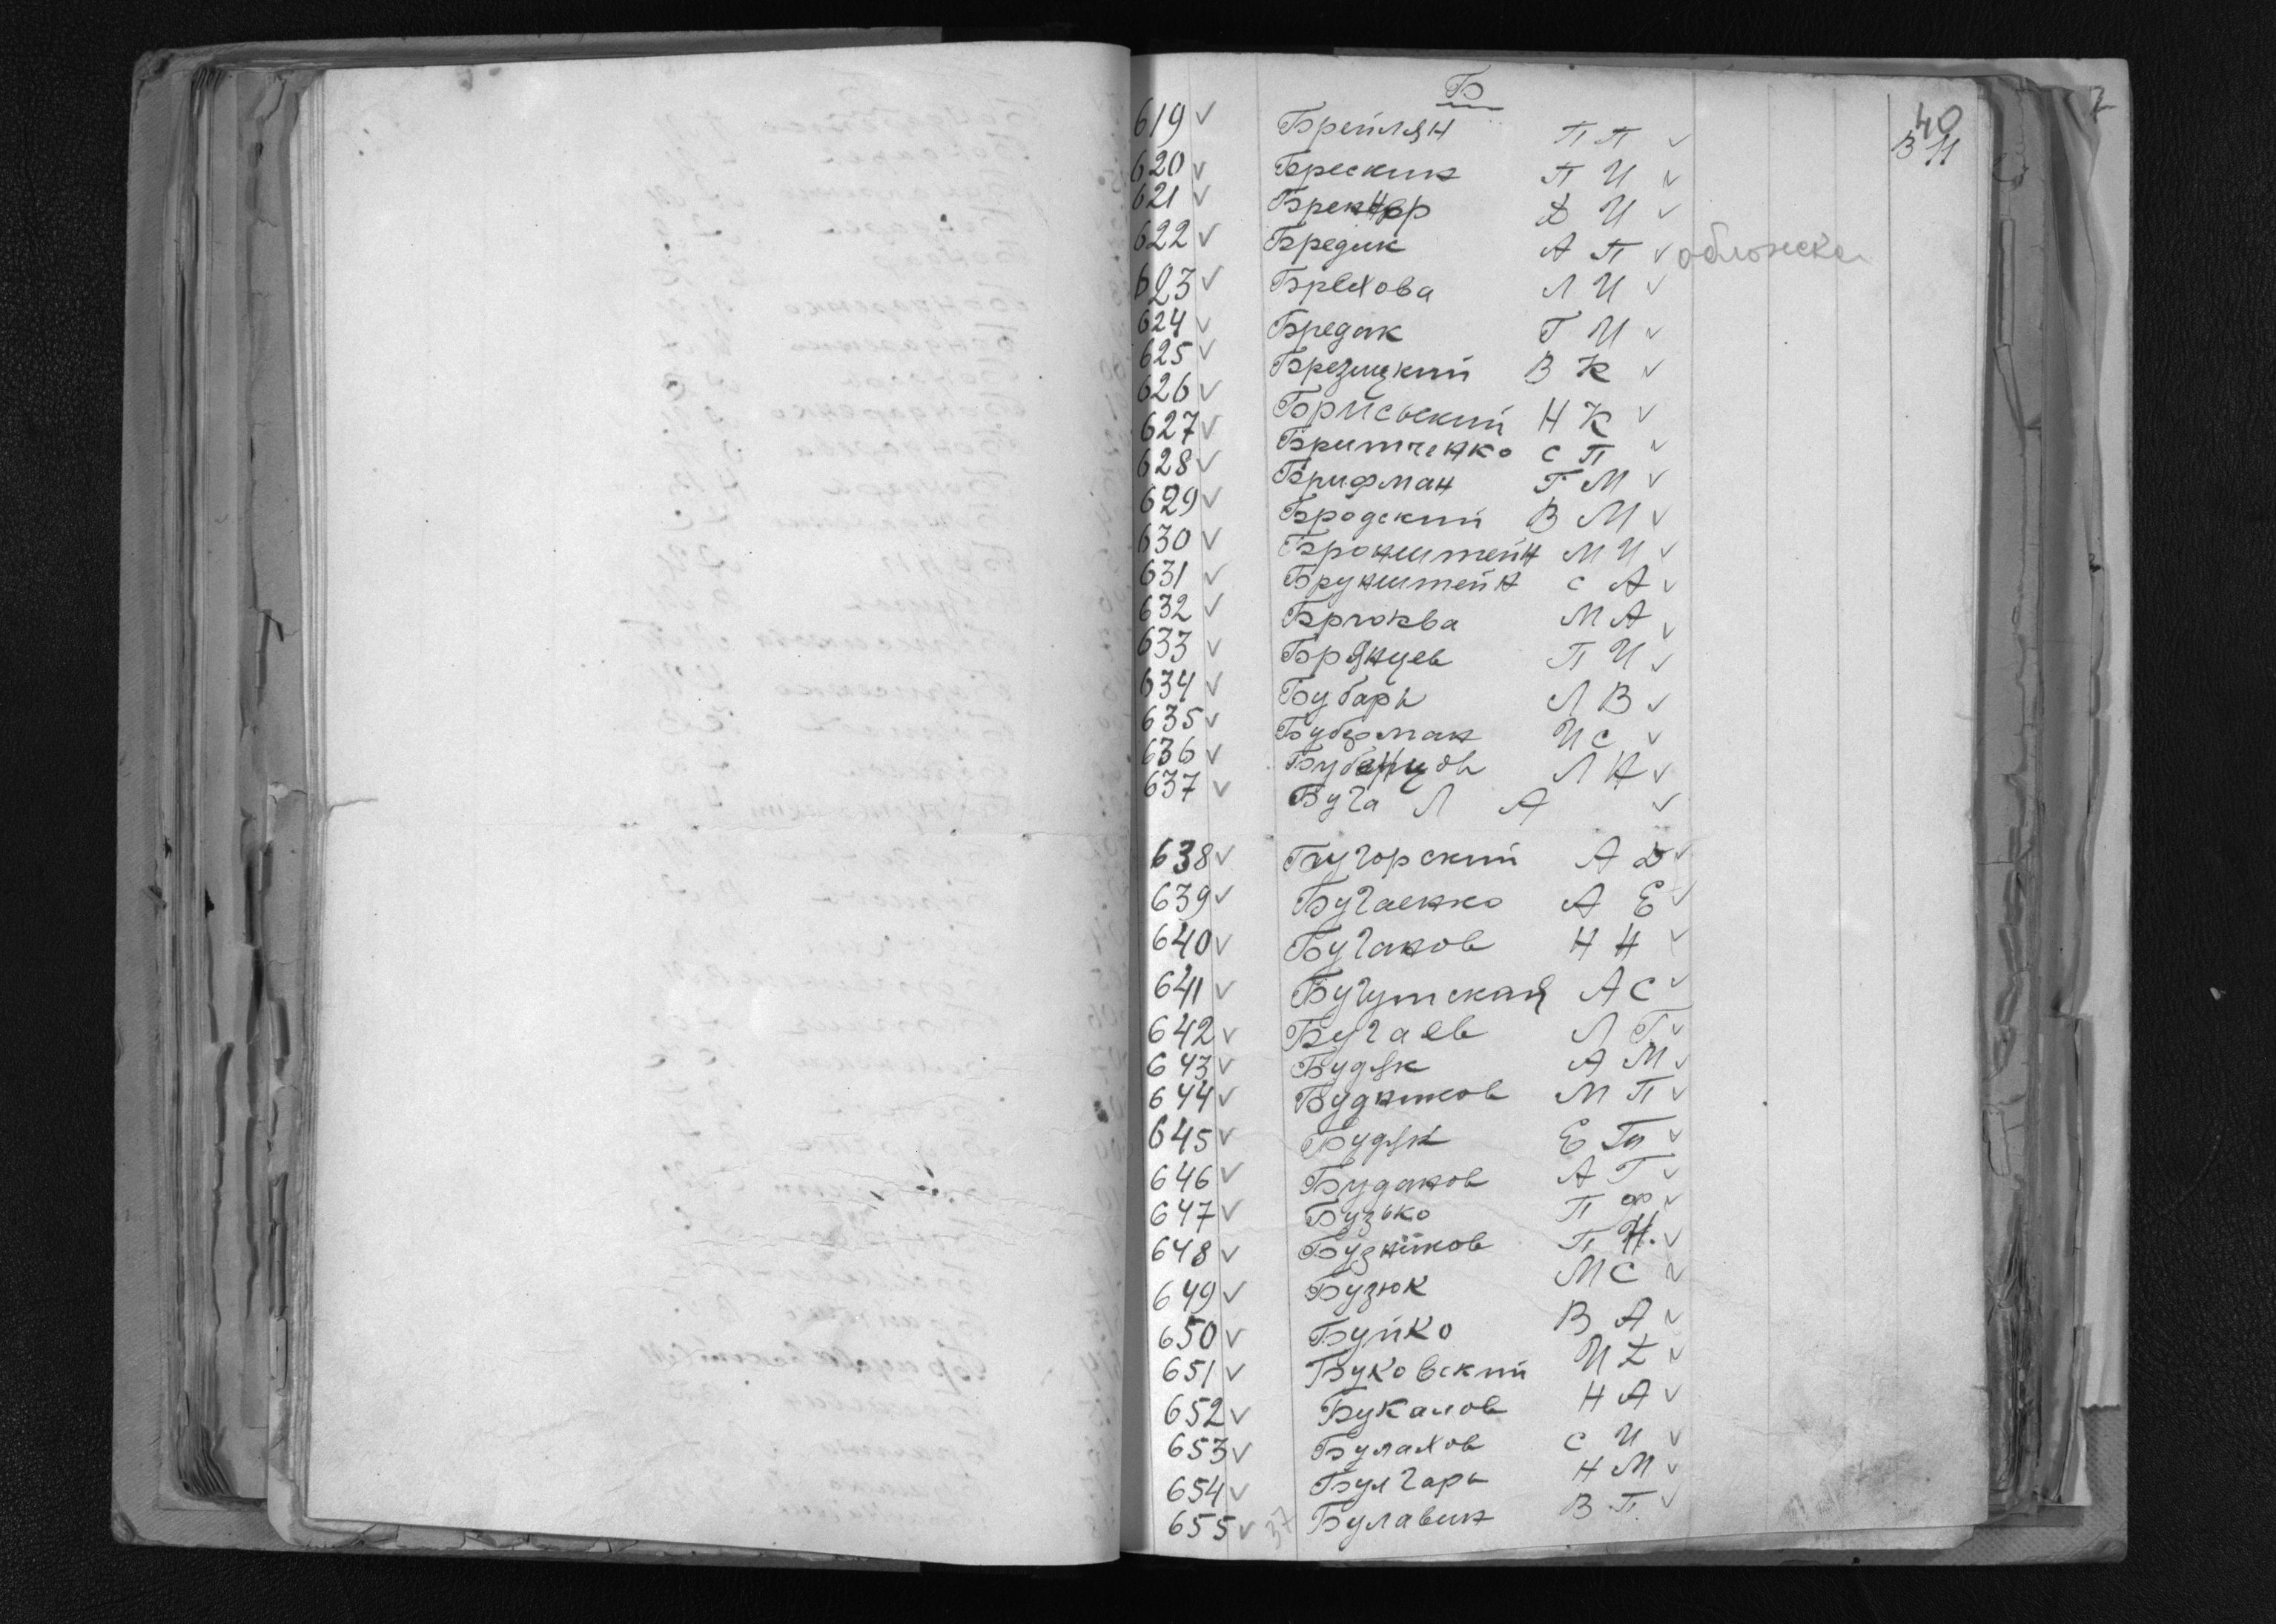 Б
40
В 11
619 ✓ Брейлян П П ✓
620 ✓ Брескин П И ✓
621 ✓ Д И ✓
622 ✓ Бредик А П ✓ обложка
623 ✓ Брехова Л И ✓
624 ✓ Бредак Г И ✓
625 ✓ Брезицкий В К ✓
626 ✓ Брисьский Н К ✓
627 ✓ Бритченко С П ✓
628 ✓ Брифман Г М ✓
629 ✓ Бродский В М ✓
630 ✓ Бронштейн М И ✓
631 ✓ Брунштейн С А ✓
632 ✓ Брюква М А ✓
633 ✓ Брянцев П И ✓
634 ✓ Бубарь Л В ✓
635 ✓ И С ✓
636 ✓ Бубенцов Л Н ✓
637 ✓ Буга Л А ✓
638 ✓ Бугорский А Д ✓
639 ✓ Бугаенко А Е ✓
640 ✓ Бугаков Н Н ✓
641 ✓ Бугутская А С ✓
642 ✓ Бугаев Л Г ✓
643 ✓ Будяк А М ✓
644 ✓ Будников М П ✓
645 ✓ Будяк Е ✓
646 ✓ Будаков А Г ✓
647 ✓ Бузько П Ф ✓
648 ✓ Бузников П И. ✓
649 ✓ Бузюк М С ✓
650 ✓ Буйко В А ✓
651 ✓ Буковский И Д ✓
652 ✓ Букалов Н А ✓
653 ✓ Булахов С И ✓
654 ✓ Булгарь Н М ✓
655 ✓ 37 Булавин В П. ✓